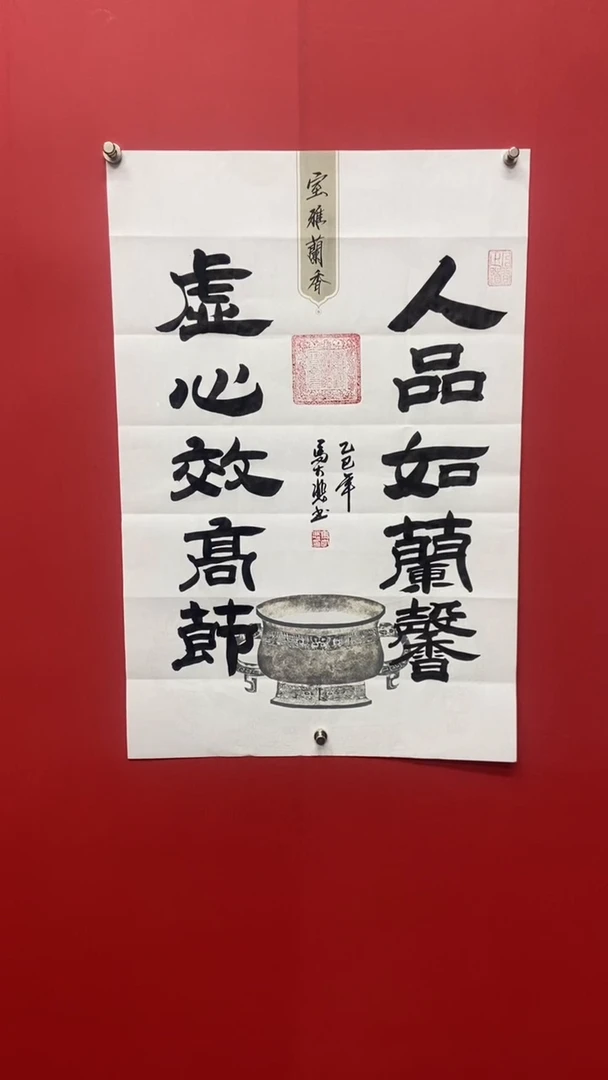 人品如蘭馨
室雅蘭香
乙巳年
虛心效高節